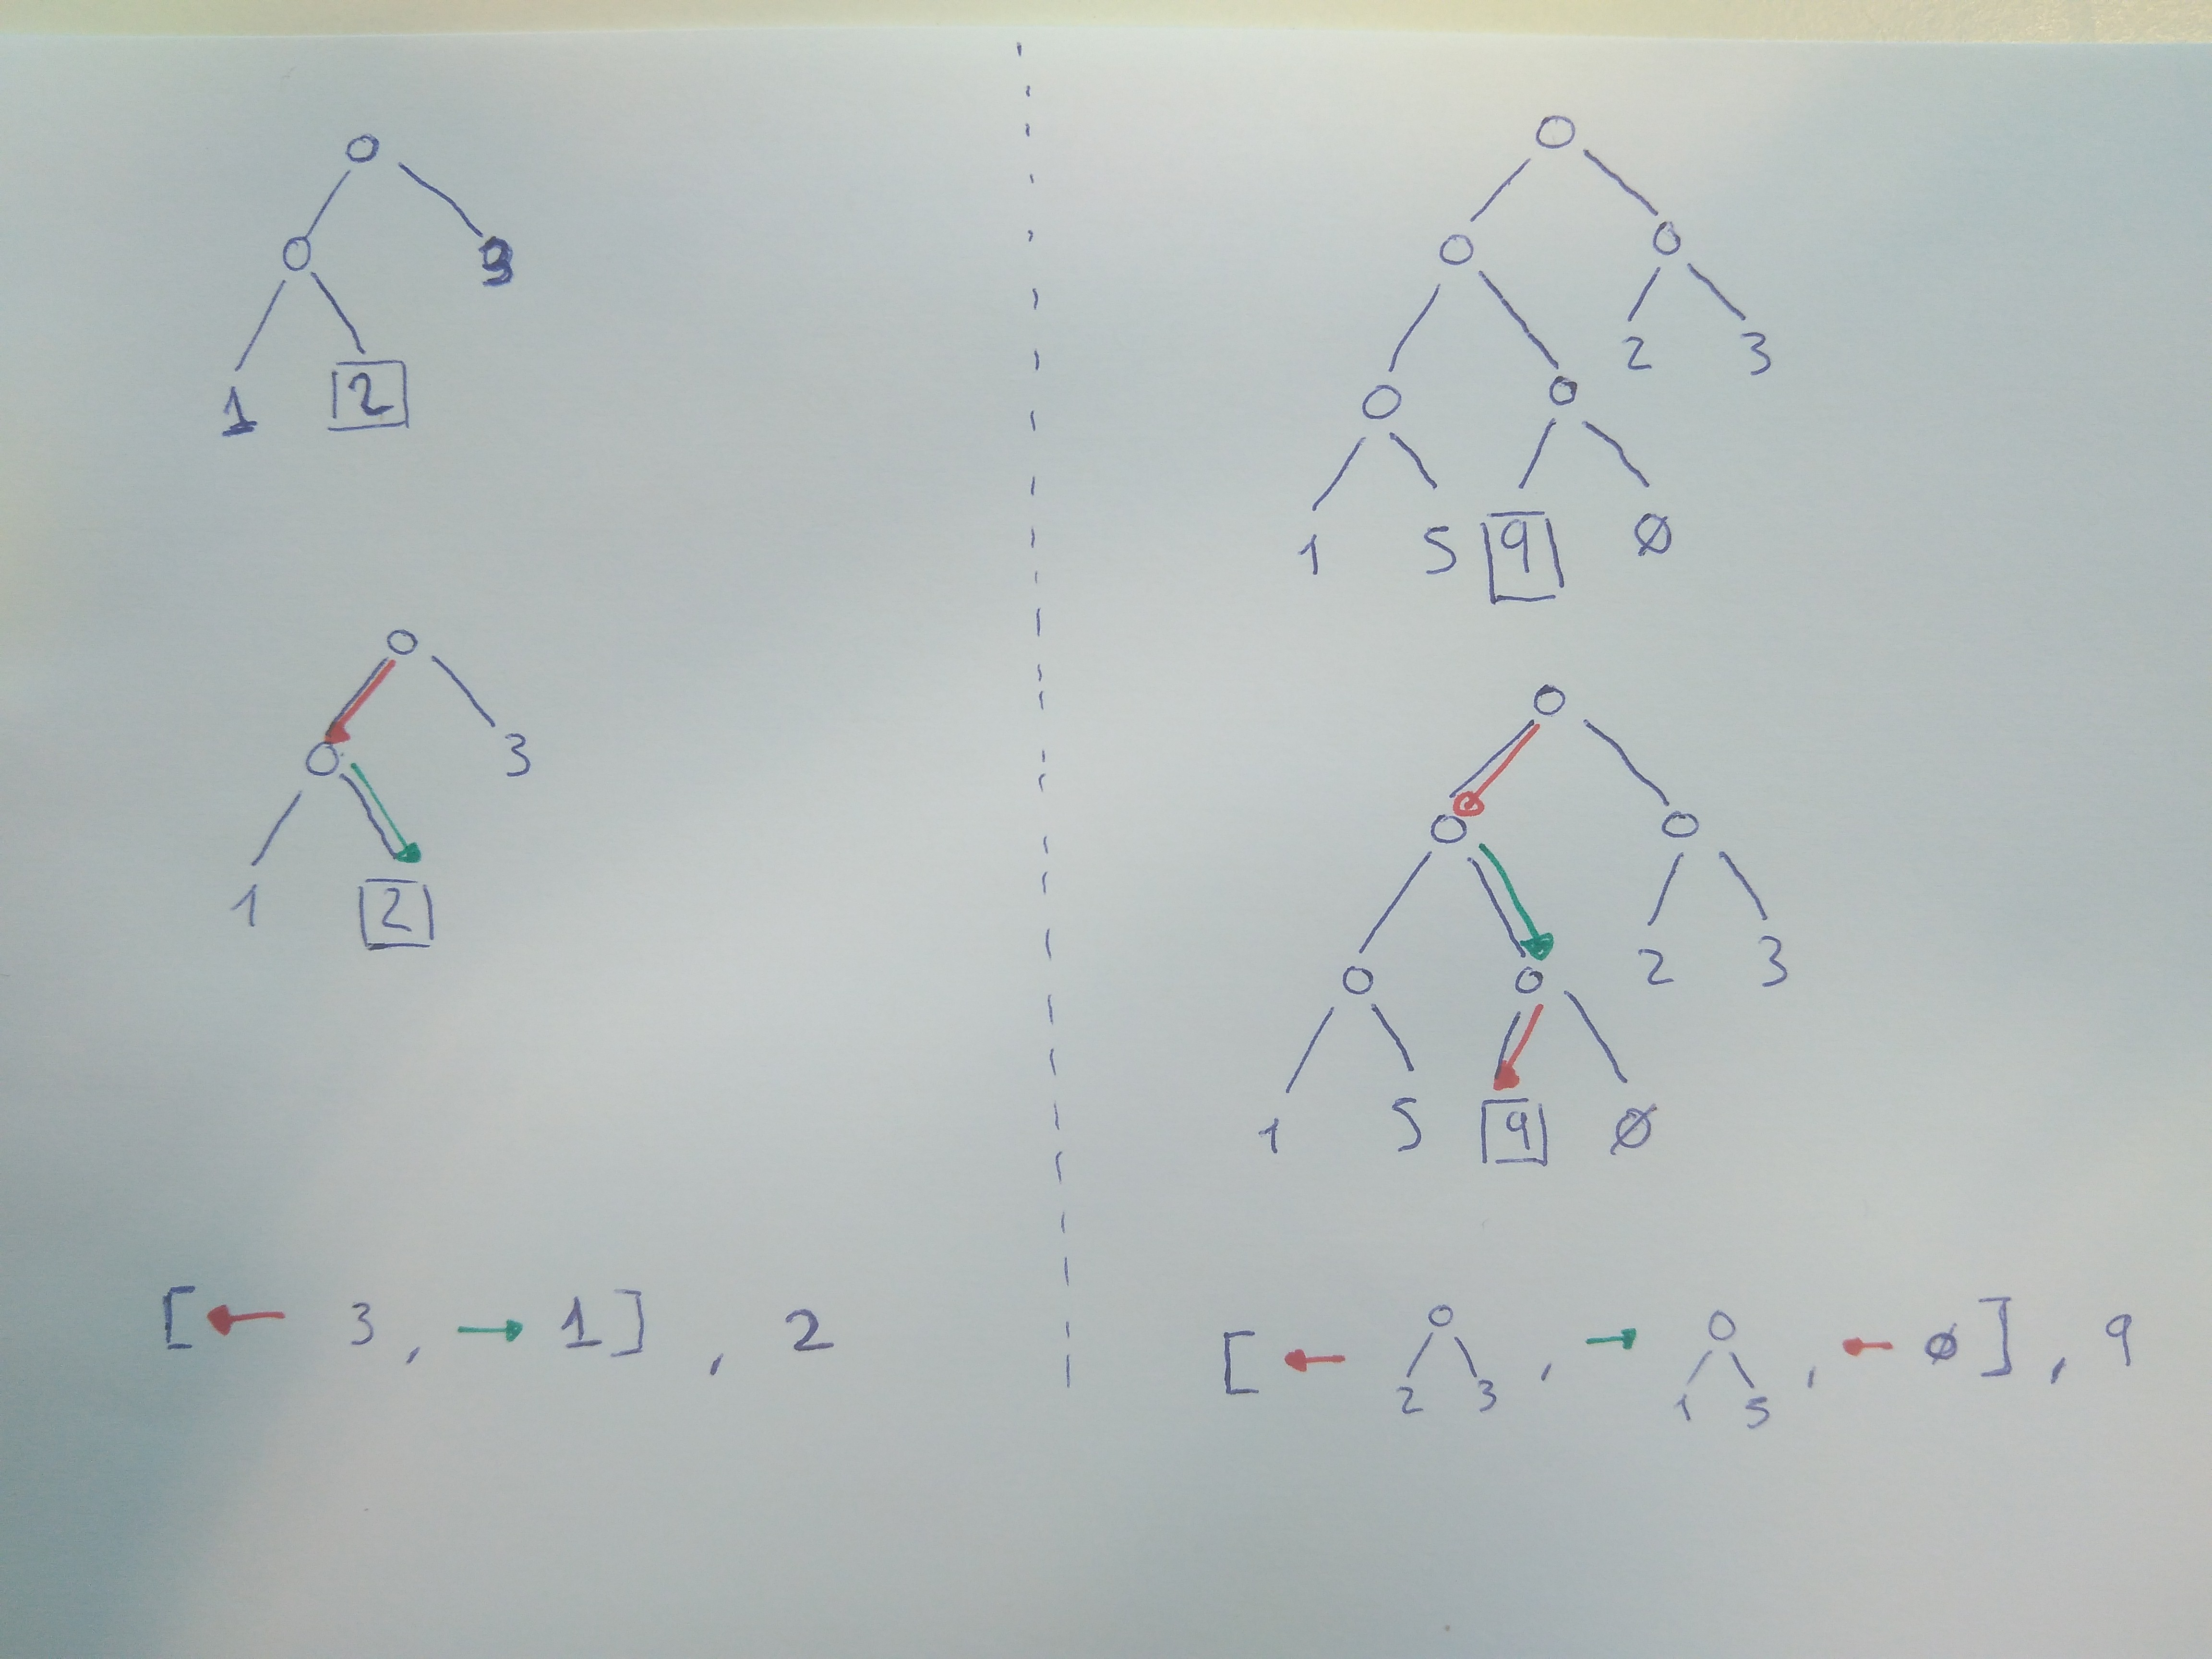 3
1 2
3
1 2
[← 3, → 1], 2
2 3
1 5 9 Ø
2 3
1 5 9 Ø
[← 2 3, → 1 5, ← Ø], 9